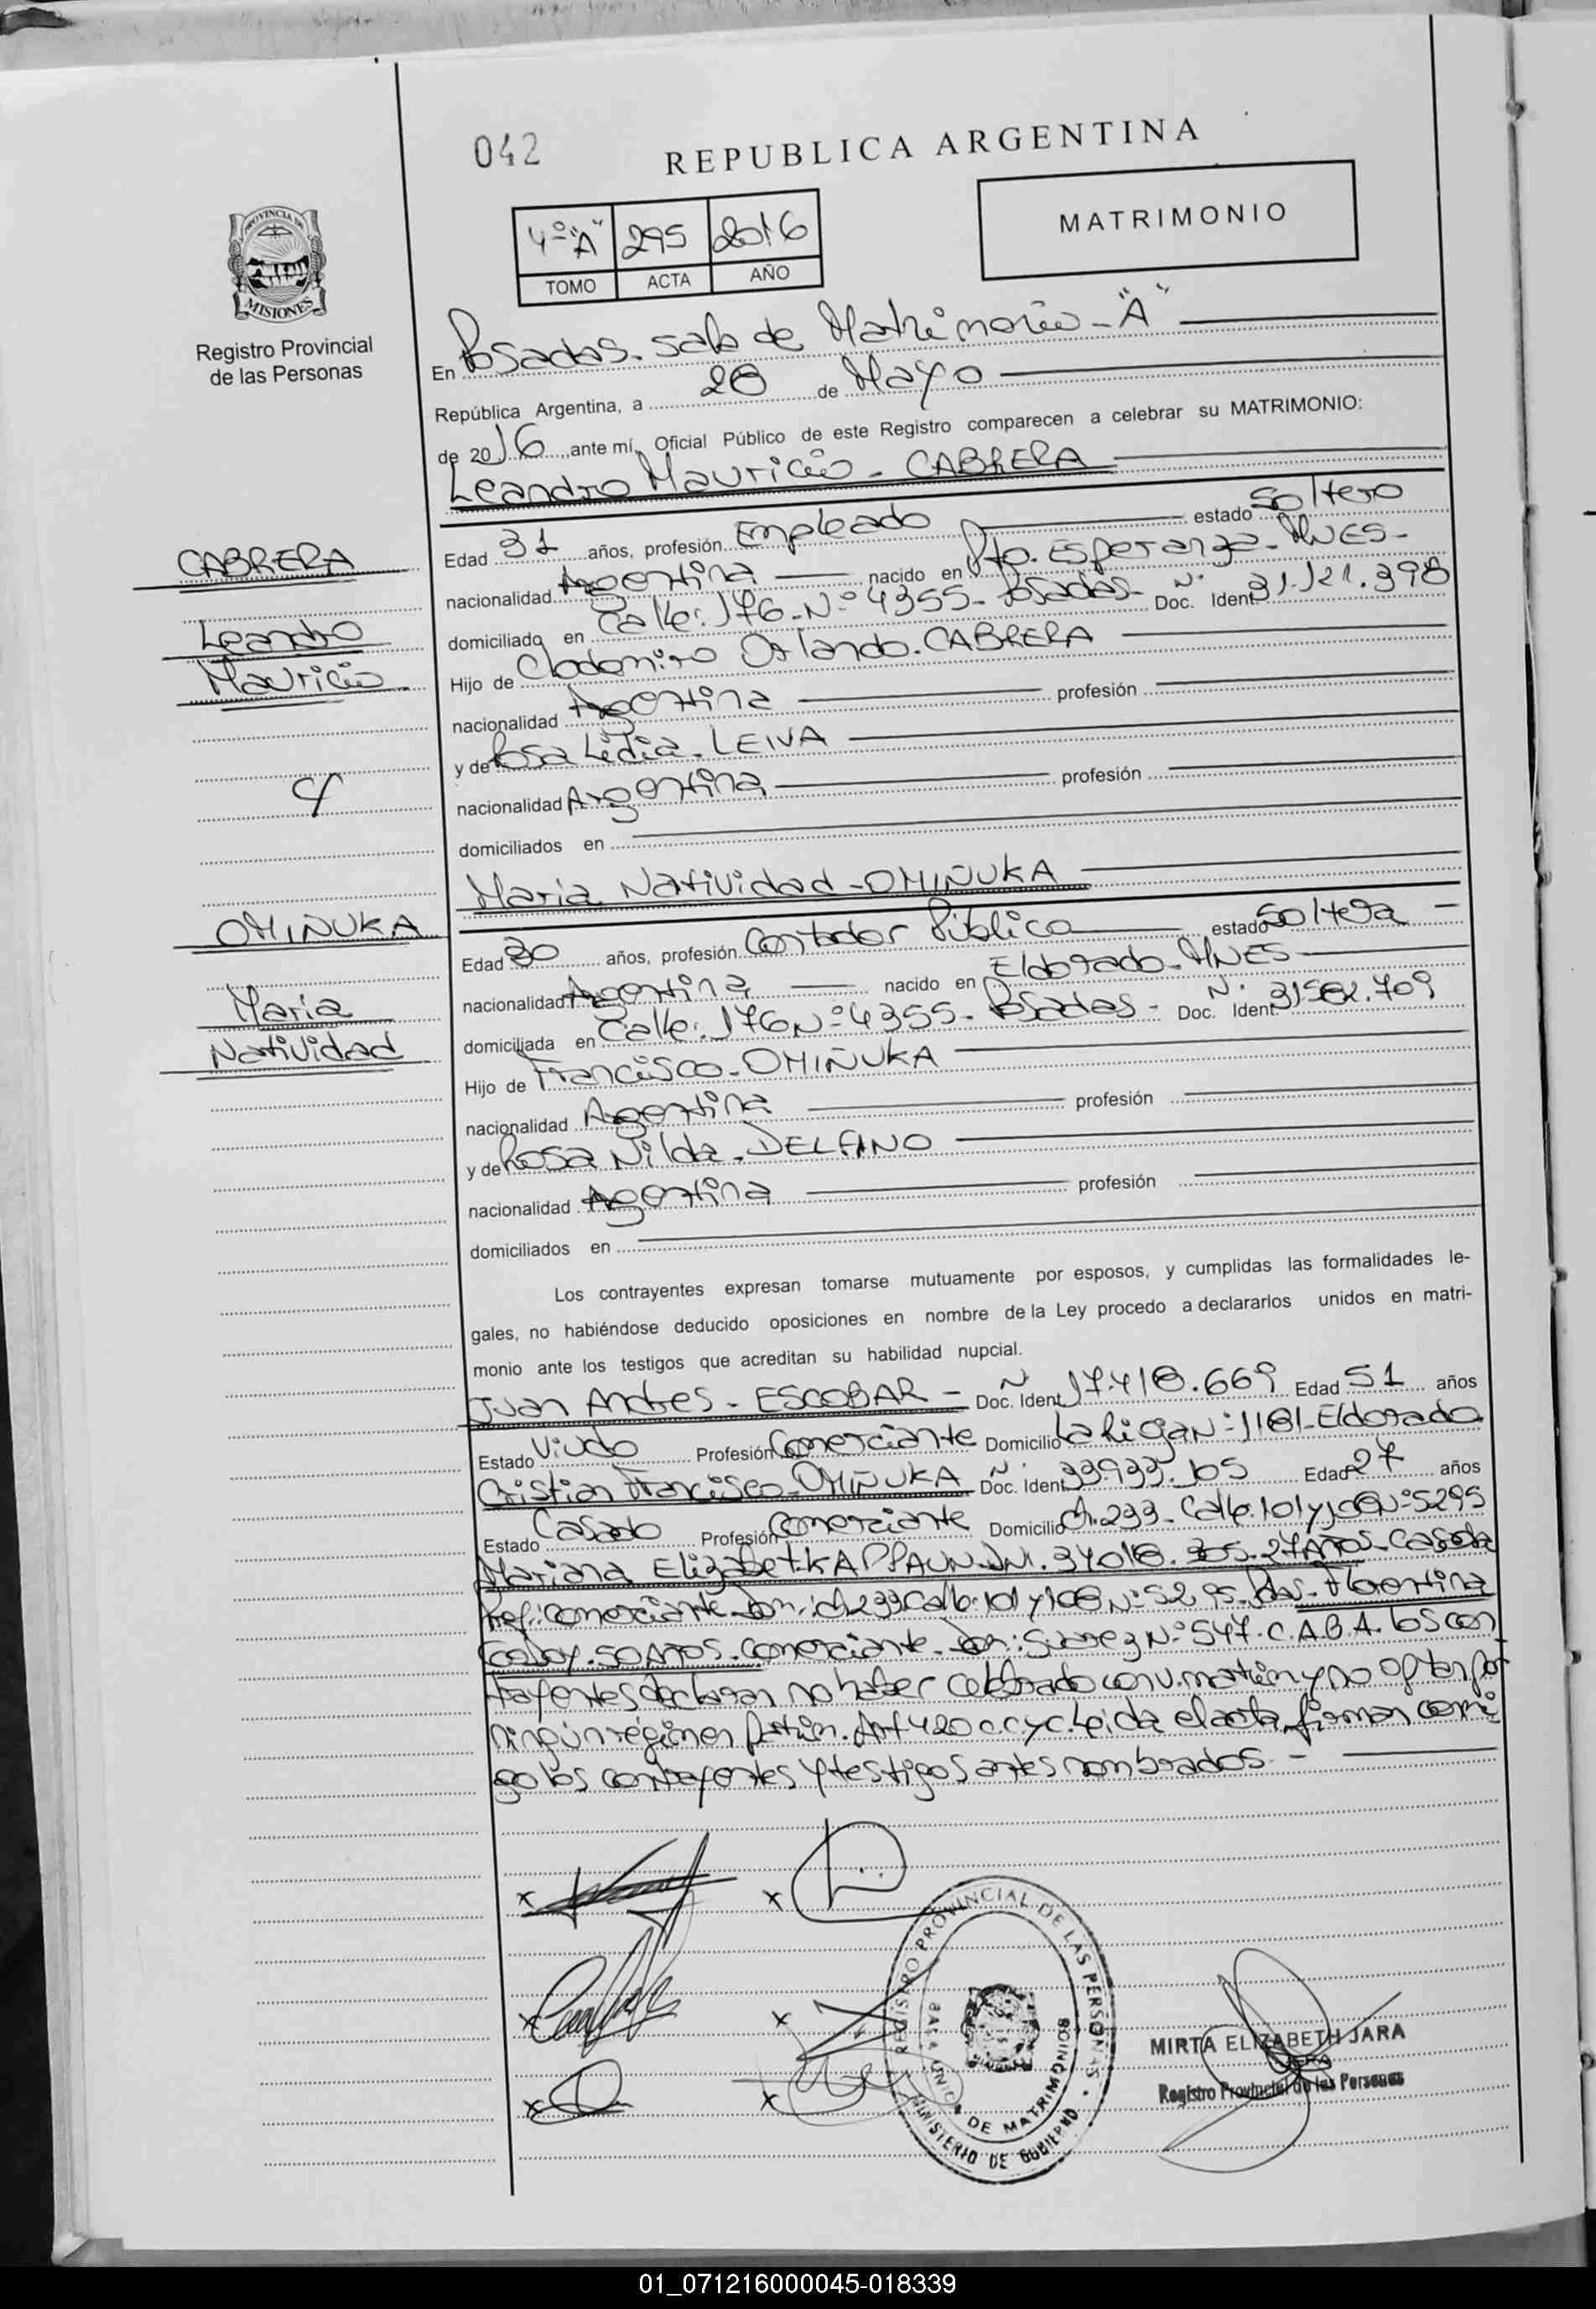 042
REPUBLICA ARGENTINA
MATRIMONIO
4º "A" 295 2016
TOMO ACTA AÑO
PROVINCIA DE
MISIONES
Registro Provincial
de las Personas
En Posadas - sala de Matrimonio - "A"
República Argentina, a 28 de Mayo
de 2016 ante mí, Oficial Público de este Registro comparecen a celebrar su MATRIMONIO:
Leandro Mauricio - CABRERA
CABRERA
Leandro
Mauricio
Edad 31 años, profesión Empleado estado Soltero
nacionalidad Argentina nacido en Pto. Esperanza - MNES -
domiciliado en Calle: 176 - Nº 4355 - Posadas - Doc. Ident. Nº 31.121.398
Hijo de Clodomiro Orlando. CABRERA
nacionalidad Argentina profesión
y de Rosa Lidia - LEIVA
nacionalidad Argentina profesión
domiciliados en
c/
Maria Natividad - OMIÑUKA
OMIÑUKA
Maria
Natividad
Edad 30 años, profesión Contador Pública estado Soltera -
nacionalidad Argentina nacido en Eldorado - MNES
domiciliada en Calle: 176 Nº 4355 - Posadas - Doc. Ident. Nº 31.582.709
Hijo de Francisco - OMIÑUKA
nacionalidad Argentina profesión
y de Rosa Nilda - DELFINO
nacionalidad Argentina profesión
domiciliados en
Los contrayentes expresan tomarse mutuamente por esposos, y cumplidas las formalidades le-
gales, no habiéndose deducido oposiciones en nombre de la Ley procedo a declararlos unidos en matri-
monio ante los testigos que acreditan su habilidad nupcial.
Juan Andres - ESCOBAR - Doc. Ident. Nº 17.418.669 Edad 51 años
Estado Viudo Profesión Comerciante Domicilio La Rioja Nº 1181 - Eldorado
Cristian Francisco - OMIÑUKA Doc. Ident. Nº 33.933.105 Edad 27 años
Estado Casado Profesión Comerciante Domicilio Ch. 233 - Calle 101 y 108 Nº 5295
Mariana Elizabet KAPPAUN - DNI. 34.018.305 - 27 Años - Casada
Prof: comerciante - Dom: Ch 233 Calle 101 y 108 Nº 5295 - Pdas - Florentina
Godoy - 50 Años - comerciante - Dom: Suarez Nº 547 - C.A.B.A. los con
trayentes declaran no haber celebrado conv. matrim y no optan por
ningún régimen Patrim. Art 420 ccyc. Leida el acta, firman conmi
go los contrayentes y testigos antes nombrados -
REGISTRO PROVINCIAL DE LAS PERSONAS
SALA UNICA DE MATRIMONIOS
MINISTERIO DE GOBIERNO
MIRTA ELIZABETH JARA
Registro Provincial de las Personas
01_071216000045-018339